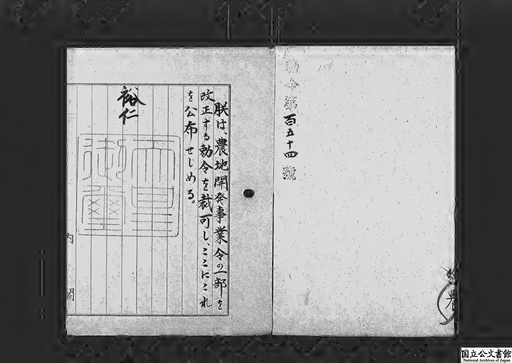 勅令第百五十四號
朕は、農地開発事業令の一部を
改正する勅令を裁可し、ここにこれ
を公布せしめる。
裕仁
天皇
御璽
内閣
農
国立公文書館
National Archives of Japan